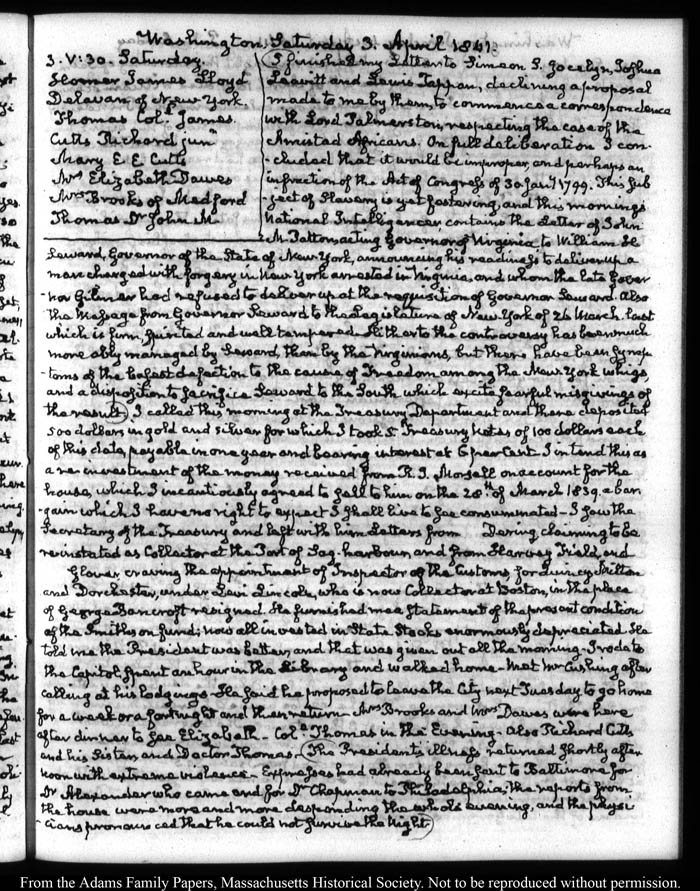 Washington, Saturday 3. April 1841.
3. V:30. Saturday.
Homer James Lloyd
Delavan of New York.
Thomas Colⁿ James.
Cutts Richard junʳ
Mary E. E. Cutts
Mʳˢ Elizabeth Dawes
Mʳˢ Brooks of Medford
Thomas Dʳ John M.
I finished my Letter to Simeon S. Jocelyn, Joshua
Leavitt and Lewis Tappan, declining a proposal
made to me by them, to commence a correspondence
with Lord Palmerston, respecting the case of the
Amistad Africans. On full deliberation I con-
-cluded that it would be improper, and perhaps an
infraction of the Act of Congress of 30 Janʸ 1799. This sub
-ject of Slavery is yet festering, and this morning's
National Intelligencer contains the Letter of John
M. Patton, acting Governor of Virginia to William H.
Seward, Governor of the State of New York, announcing his readiness to deliver up a
man charged with forgery in New York arrested in Virginia, and whom the late Gover
-nor Gilmer had refused to deliver up at the requisition of Governor Seward. Also
the Message from Governor Seward to the Legislature of New York of 26 March last
which is firm, spirited and well tempered. Hitherto the controversy has been much
more ably managed by Seward, than by the Virginians, but there have been symp-
-toms of the basest defection to the cause of Freedom among the New York whigs,
and a disposition to sacrifice Seward to the South which excite fearful misgivings of
the result. I called this morning at the Treasury Department and there deposited
500 dollars in gold and silver for which I took 5 Treasury Notes of 100 dollars each
of this date, payable in one year and bearing interest at 6 per Cent. I intend this as
a re-investment of the money received from R. I. Morsell on account for the
house, which I incautiously agreed to sell to him on the 20ᵗʰ of March 1839. a bar-
-gain which I have no right to expect I shall live to see consummated - I saw the
Secretary of the Treasury and left with him Letters from Dering, claiming to be
reinstated as Collector at the Port of Sag-harbour, and from Harvey Field, and
Glover craving the appointment of Inspector of the Customs for Quincy, Milton
and Dorchester, under Levi Lincoln, who is now Collector at Boston, in the place
of George Bancroft resigned. He furnished me a Statement of the present condition
of the Smithson fund; now all invested in State Stocks enormously depreciated. He
told me the President was better, and that was given out all the morning. I rode to
the Capitol. Spent an hour in the Library and walked home - Met Mʳ Cushing after
calling at his lodgings. He said he proposed to leave the City next Tuesday to go home
for a week or a fortnight and then return. Mʳˢ Brooks and Mʳˢ Dawes were here
after dinner to see Elizabeth. Colⁿ Thomas in the Evening - Also Richard Cutts
and his Sister, and Doctor Thomas. The President's illness returned shortly after
noon with extreme violence - Expresses had already been sent to Baltimore for
Dʳ Alexander who came and for Dʳ Chapman to Philadelphia; the reports from
the house were more and more desponding the whole evening, and the physi
-cians pronounced that he could not survive the night.
From the Adams Family Papers, Massachusetts Historical Society. Not to be reproduced without permission.